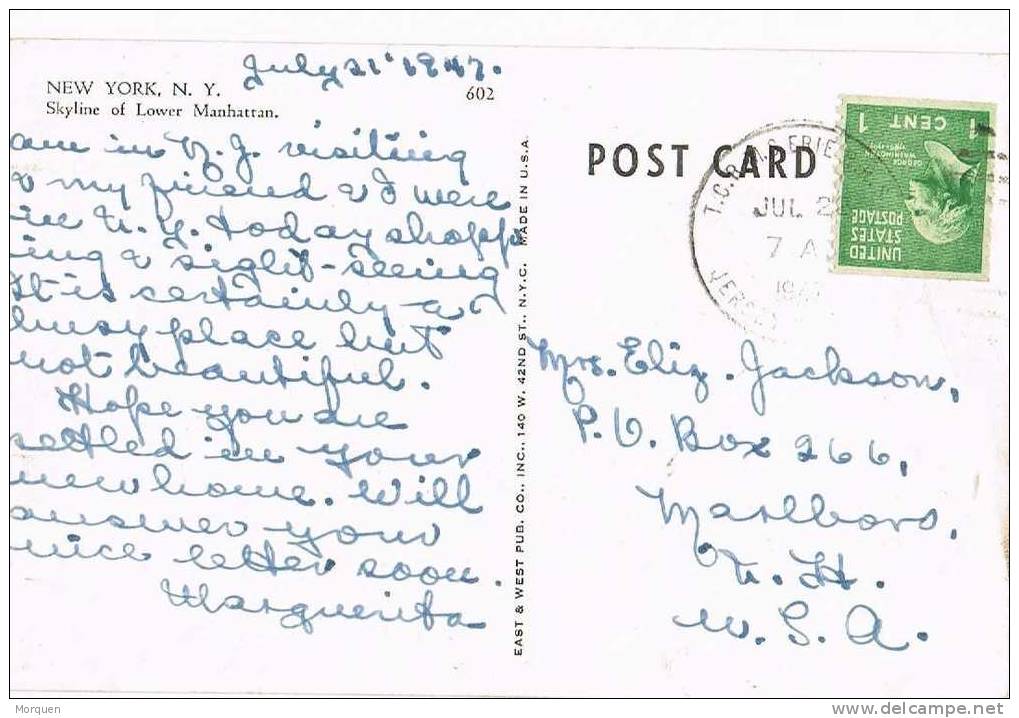 July 21 1947.
NEW YORK, N. Y.
602
Skyline of Lower Manhattan.
am in N.J. visiting
& my friend & I were
in N.Y. today shopp-
ing & sight-seeing
It is certainly a
busy place but
not beautiful.
Hope you are
settled in your
new home. Will
answer your
nice letter soon.
Marguerita
EAST & WEST PUB. CO., INC., 140 W. 42ND ST., N.Y.C. MADE IN U.S.A.
POST CARD
JUL 2
7 A
194
1 CENT 1
GEORGE
WASHINGTON
UNITED
STATES
POSTAGE
Mrs. Eliz. Jackson,
P.O. Box 266,
Marlboro,
N.H.
U.S.A.
Morquen
www.delcampe.net